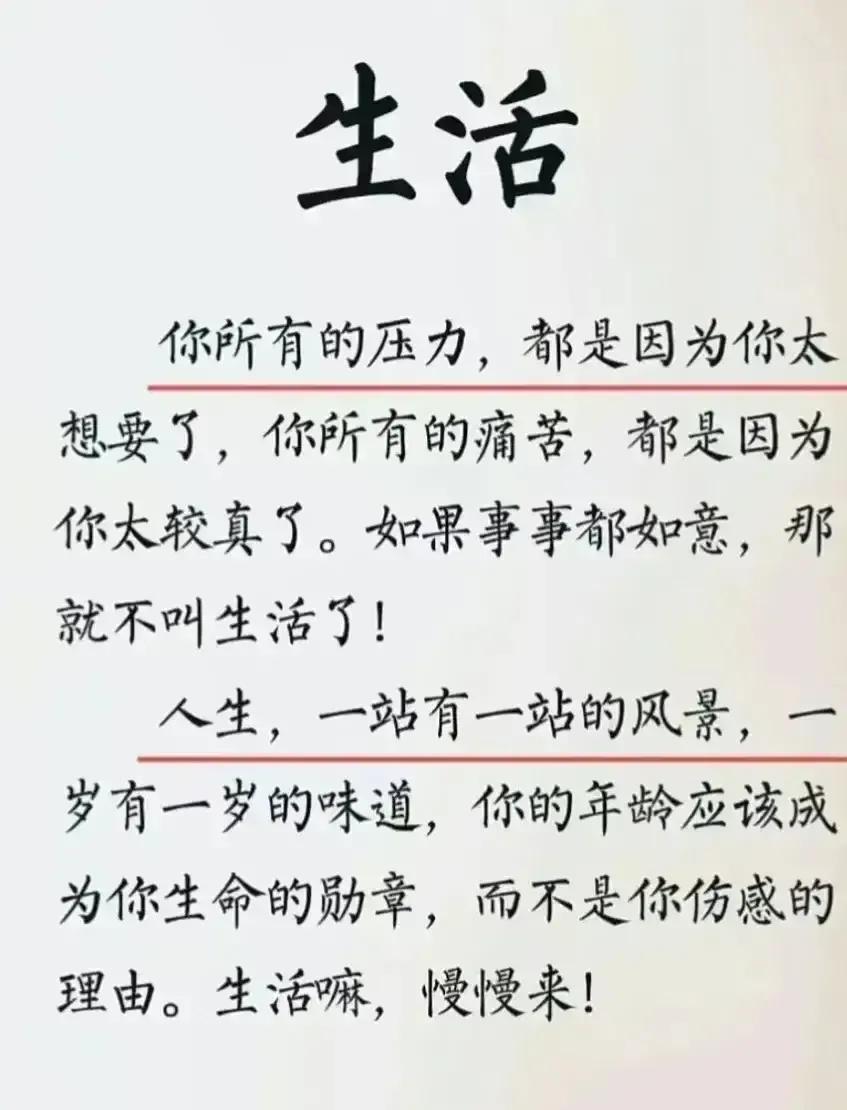 生活
你所有的压力，都是因为你太
想要了，你所有的痛苦，都是因为
你太较真了。如果事事都如意，那
就不叫生活了！
人生，一站有一站的风景，一
岁有一岁的味道，你的年龄应该成
为你生命的勋章，而不是你伤感的
理由。生活嘛，慢慢来！